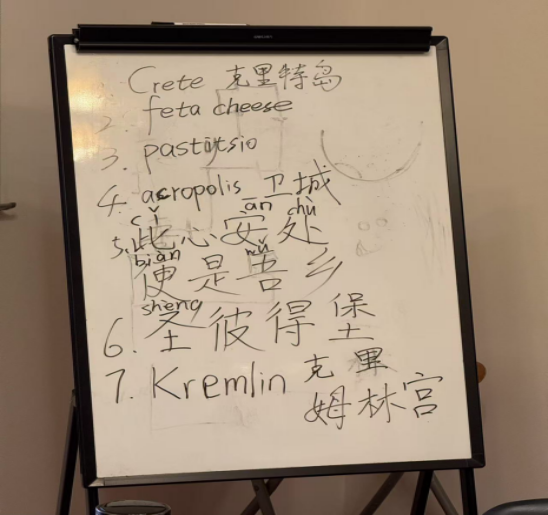 1. Crete 克里特岛
2. feta cheese
3. pastitsio
4. acropolis 卫城
cǐ ān chù
5. 此心安处
biàn wú
便是吾乡
shèng
6. 圣彼得堡
7. Kremlin 克里
姆林宫